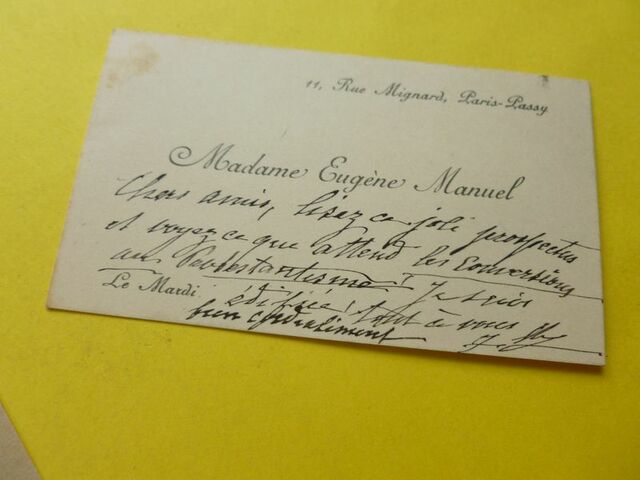 11, Rue Mignard, Paris-Passy
Madame Eugène Manuel
Chers amis, lisez ce joli prospectus
et voyez ce que attend les conversions
au Protestantisme! Je suis
Le Mardi.
édifiée! tout à vous
bien cordialement